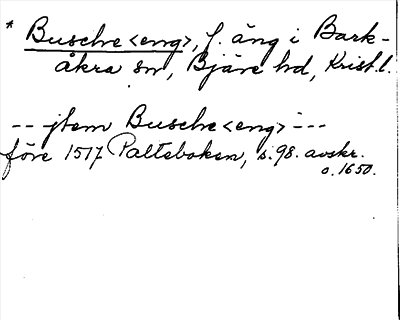 * Busche<eng>, f. äng i Bark-
åkra sn, Bjäre hd, Krist.l.
-- jtem Busche<eng> ---
före 1517 Palteboken, s. 98. avskr.
o. 1650.